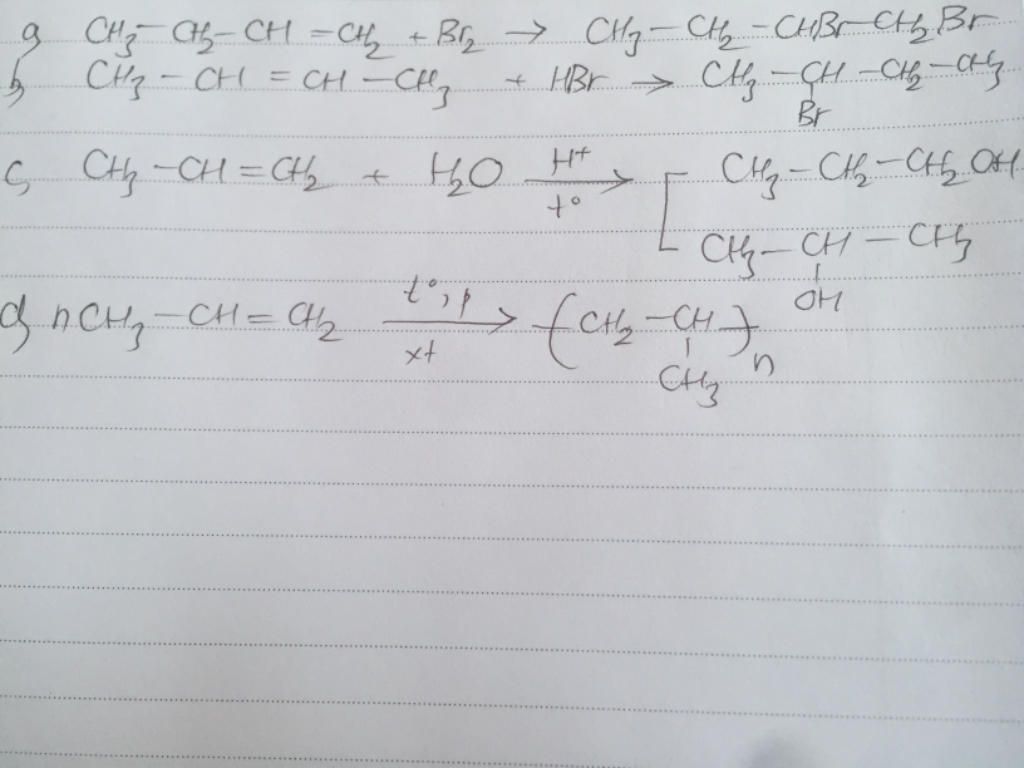 a, CH3 – CH2 – CH = CH2 + Br2 → CH3 – CH2 – CHBr – CH2Br
b, CH3 – CH = CH – CH3 + HBr → CH3 – CH – CH2 – CH3
Br
c, CH3 – CH = CH2 + H2O H+ t° → CH3 – CH2 – CH2OH
CH3 – CH – CH3
OH
d, nCH3 – CH = CH2 t°, p xt → ( CH2 – CH ) n
CH3